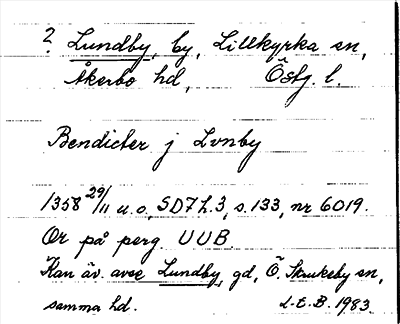 ? Lundby, by, Lillkyrka sn,
Åkerbo hd, Östg. l.
Bendicter j Lvnby
1358 29/11 u.o, SD7 h.3, s.133, nr 6019.
Or på perg. UUB.
Kan äv. avse Lundby, gd, Ö. Skrukeby sn,
samma hd. L.E.B. 1983.